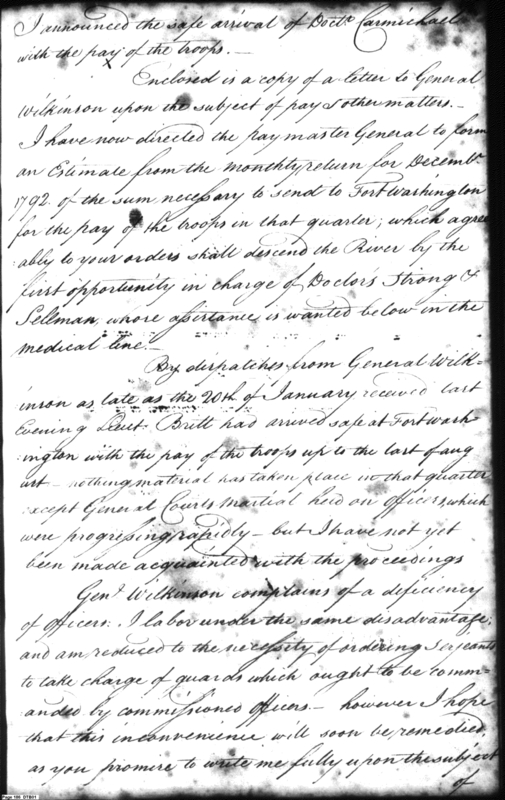 I announced the safe arrival of Doct.r Carmichael
with the pay of the troops.—
Enclosed is a copy of a letter to General
Wilkinson upon the subject of pay & other matters.—
I have now directed the paymaster General to form
an Estimate from the monthly return for Decemb.r
1792. of the sum necessary to send to Fort Washington
for the pay of the troops in that quarter; which agree-
ably to your orders shall descend the River by the
first opportunity in charge of Doctor's Strong &
Sellman, whose assistance is wanted below in the
medical line.—
By dispatches from General Wilk=
inson as late as the 20th of January received last
Evening Lieut. Britt had arrived safe at Fort Wash
ington with the pay of the troops up to the last of aug
ust— nothing material has taken place in that quarter
except General Courts Martial held on officers, which
were progressing rapidly— but I have not yet
been made acquainted with the proceedings
Gen.l Wilkinson complains of a deficiency
of officers: I labor under the same disadvantage;
and am reduced to the necessity of ordering serjeants
to take charge of guards which ought to be comm-
anded by commissioned officers— however I hope
that this inconvenience will soon be remedied,
as you promise to write me fully upon the subject
of
Page 180 DTIC01